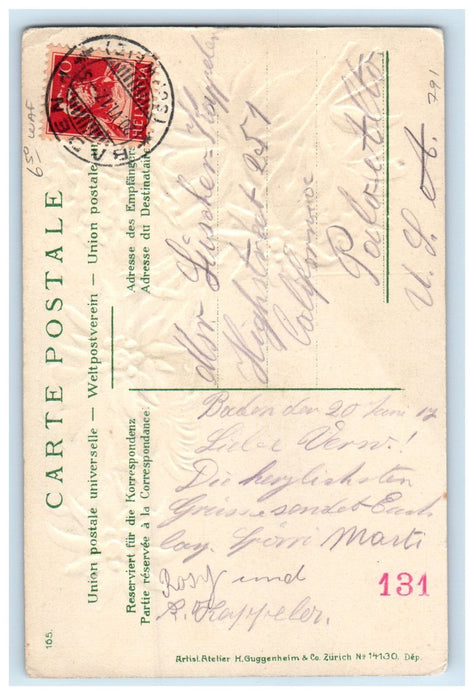 CARTE POSTALE
Union postale universelle — Weltpostverein — Union postale
Adresse des Empfängers
Adresse du Destinataire
Reserviert für die Korrespondenz
Partie réservée à la Correspondance:
10
HELVETIA
BADEN
Mr Lüscher-Kappeler
Highstreet 251
Palo-Alto
U. S. A.
791
Baden den 20 Juni 12
Liebe Verw.!
Die herzlichsten
Grüsse sendet Euch
Marti
Rosy und
R. Kappeler.
131
165.
Artist. Atelier H. Guggenheim & Co. Zürich Nº 14130. Dép.